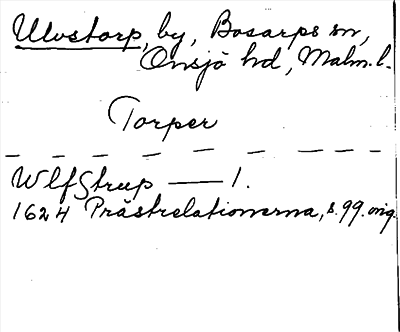 Ulvstorp, by, Bosarps sn,
Onsjö hd, Malm. l.
Torper
Wlfstrup — 1.
1624 Prästrelationerna, s. 99. orig.